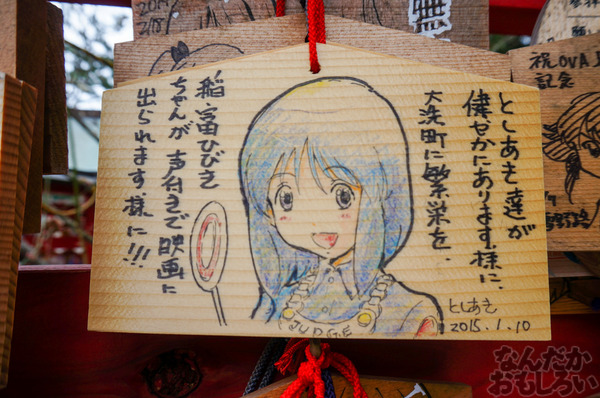 としあき達が
倖せかにあります様に、
大洗町に繁栄を.
稲富ひびき
ちゃんが声付きで映画に
出られます様に!!!
JUDGE
としあき
2015.1.10
無
祝OVA
記念
なんだか
おもしろい